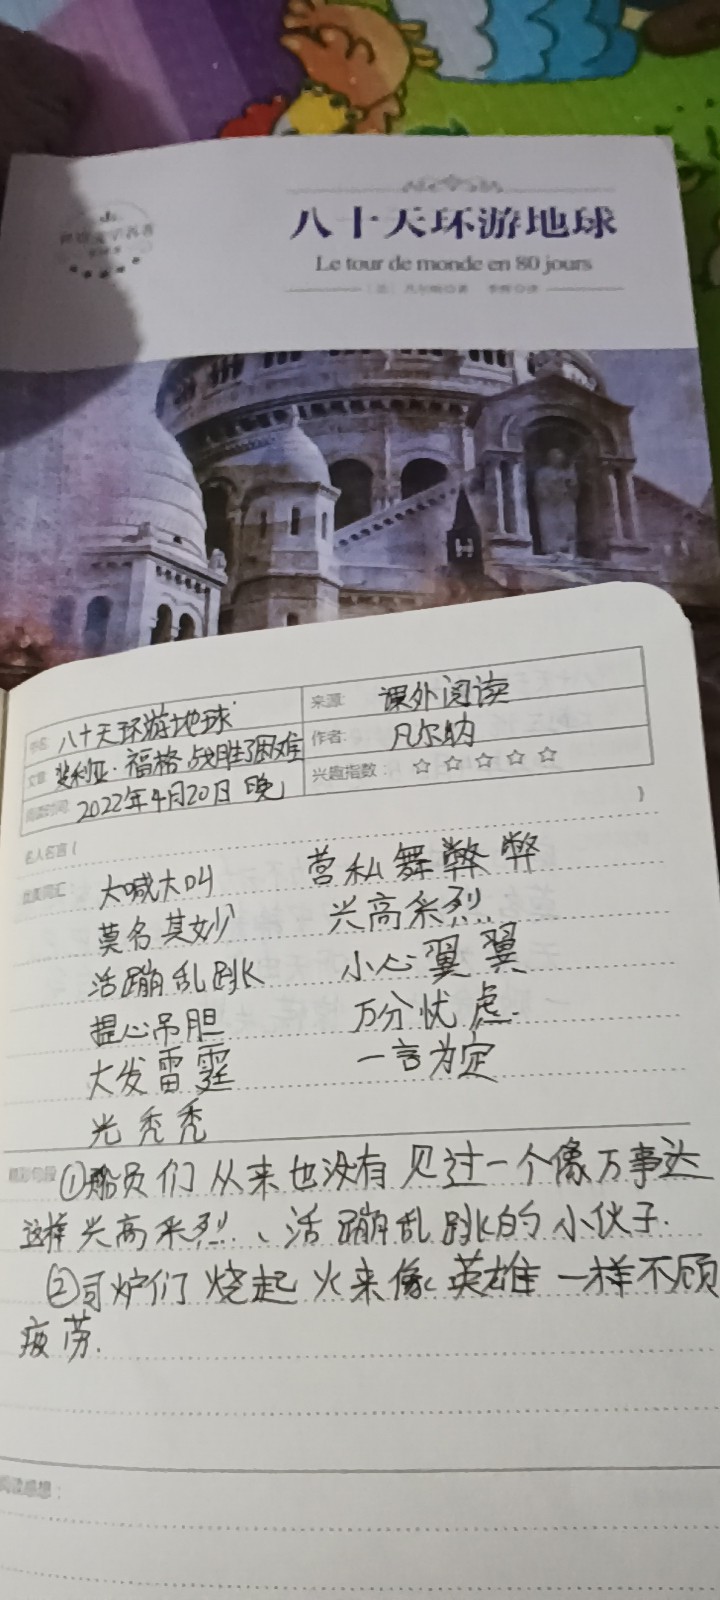 八十天环游地球
Le tour de monde en 80 jours
书名: 八十天环游地球 来源: 课外阅读
文章: 斐利亚·福格战胜困难 作者: 凡尔纳
阅读时间: 2022年4月20日 晚 兴趣指数: ☆☆☆☆☆
名人名言( )
优美词汇 大喊大叫 营私舞弊 弊
莫名其妙 兴高采烈
活蹦乱跳 小心翼翼
提心吊胆 万分忧虑.
大发雷霆 一言为定
光秃秃
精彩句段 ①船员们从来也没有见过一个像万事达
这样兴高采烈、活蹦乱跳的小伙子.
②司炉们烧起火来像英雄一样不顾
疲劳.
阅读感想: